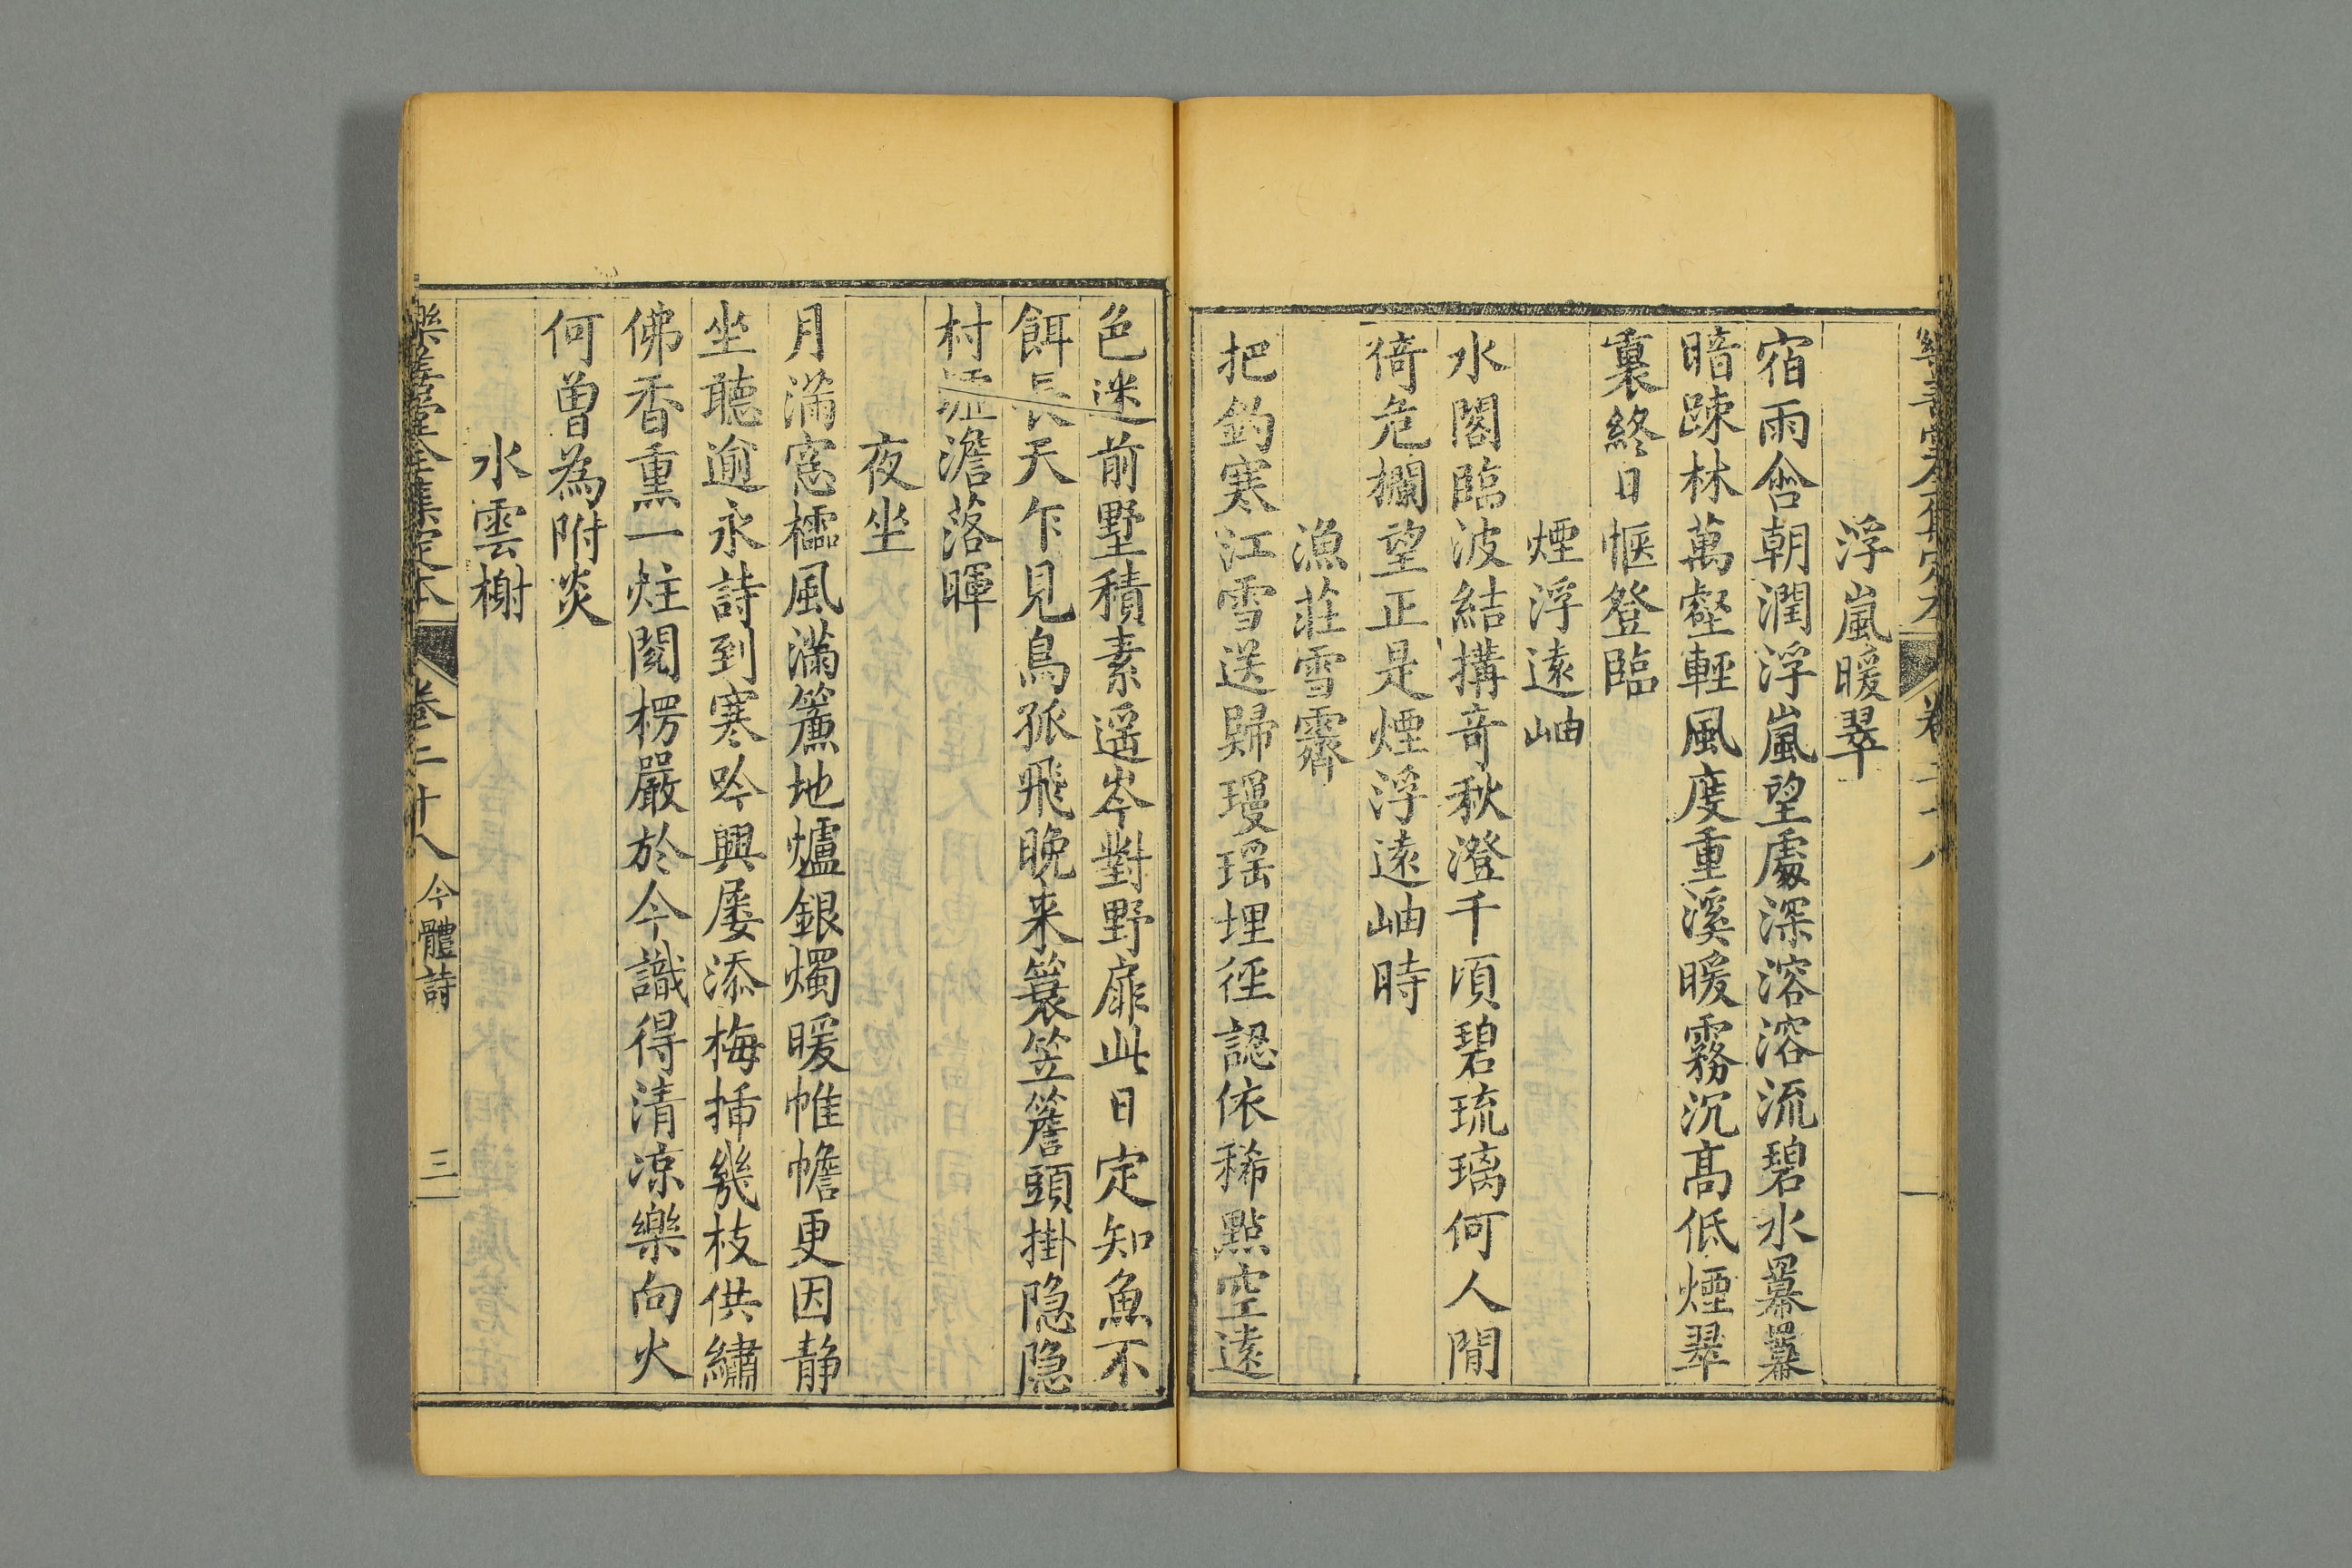 樂善堂全集定本 卷二十八
浮嵐暖翠
宿雨含朝潤浮嵐望處深溶溶流碧水羃羃
暗踈林萬壑輕風度重溪暖霧沉髙低煙翠
裏終日愜登臨
煙浮遠岫
水閣臨波結搆竒秋澄千頃碧琉璃何人閒
倚危欄望正是煙浮遠岫時
漁莊雪霽
把釣寒江雪送歸瓊瑶埋徑認依稀㸃空遠
色迷前墅積素遥岑對野扉此日定知魚不
餌長天乍見鳥孤飛晚来簑笠簷頭掛隐隐
村墟澹落暉
夜坐
月滿窻櫺風滿簾地爐銀燭暖帷幨更因静
坐聽逾永詩到寒吟興屡添梅揷幾枝供繡
佛香熏一炷閱楞嚴於今識得清凉樂向火
何曾為附炎
水雲榭
樂善堂全集定本 卷二十八 今體詩 三